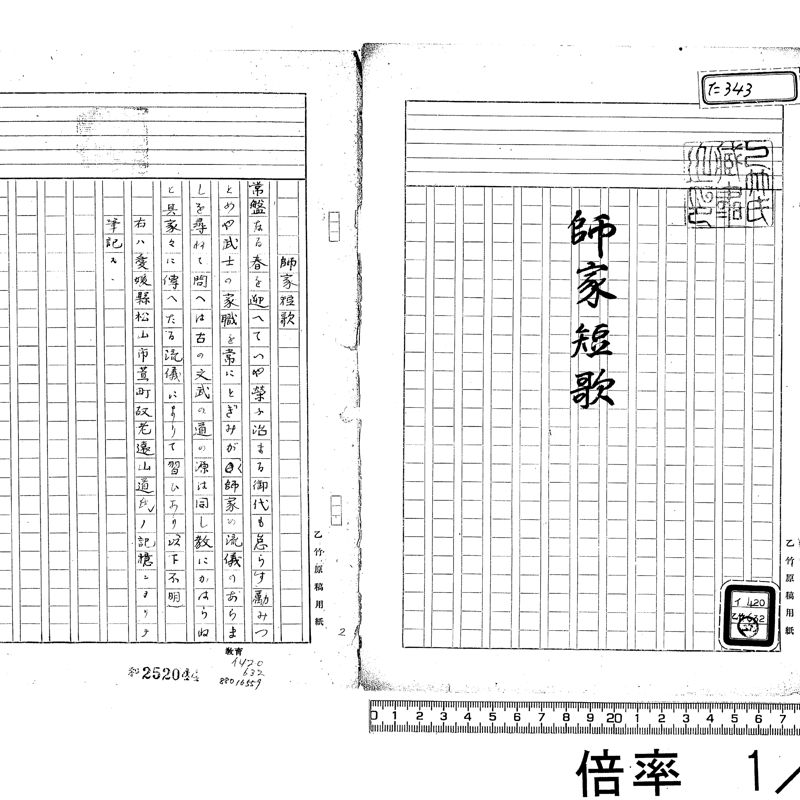 た343
乙竹氏
蔵書
師家短歌
乙竹原稿用紙
イ 420
師家短歌
常盤なる春を迎へていや榮ふ治まる御代も怠らす勵みつ
とめや武士の家職を常にとぎみがく師家の流儀のあらま
しを尋ねて問へは古の文武の道の源は同し教にかはらね
と其家々に傳へたる流儀によりて習ひあり以下不明)
右ハ愛媛縣松山市萱町故老遠山道氏ノ記憶ニヨリテ
筆記ス.
乙竹原稿用紙
2
教育
1420
632
88016559
252044
0 1 2 3 4 5 6 7 8 9 20 1 2 3 4 5 6 7
倍率 1/